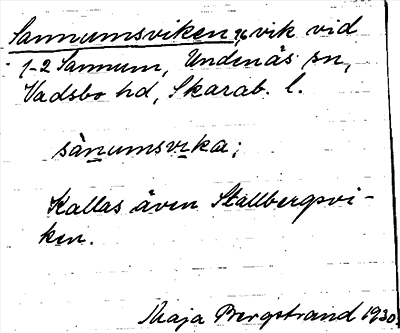 Sannumsviken, vik vid
1-2 Sannum, Undenäs sn,
Vadsbo hd, Skarab. l.
sànumsvika;
Kallas även Stallbergsvi-
ken.
Maja Bergstrand 1930.